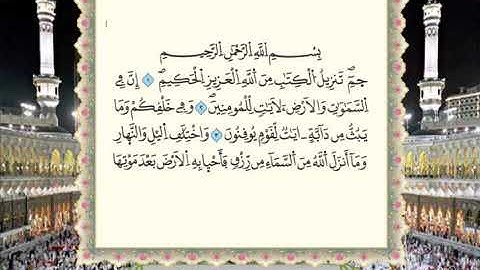 بِسْمِ اللَّهِ الرَّحْمَٰنِ الرَّحِيمِ
حمٓ تَنزِيلُ الْكِتَٰبِ مِنَ اللَّهِ الْعَزِيزِ الْحَكِيمِ ١ إِنَّ فِي
السَّمَٰوَٰتِ وَالْأَرْضِ لَأٓيَٰتٍ لِّلْمُومِنِينَ ٢ وَفِي خَلْقِكُمْ وَمَا
يَبُثُّ مِن دَآبَّةٍ ـ ايَٰتٌ لِّقَوْمٍ يُوقِنُونَ ٣ وَاخْتِلَٰفِ اليْلِ وَالنَّهَارِ
وَمَآ أَنزَلَ اللَّهُ مِنَ السَّمَآءِ مِن رِّزْقٍ فَأَحْيَا بِهِ الْأَرْضَ بَعْدَ مَوْتِهَا